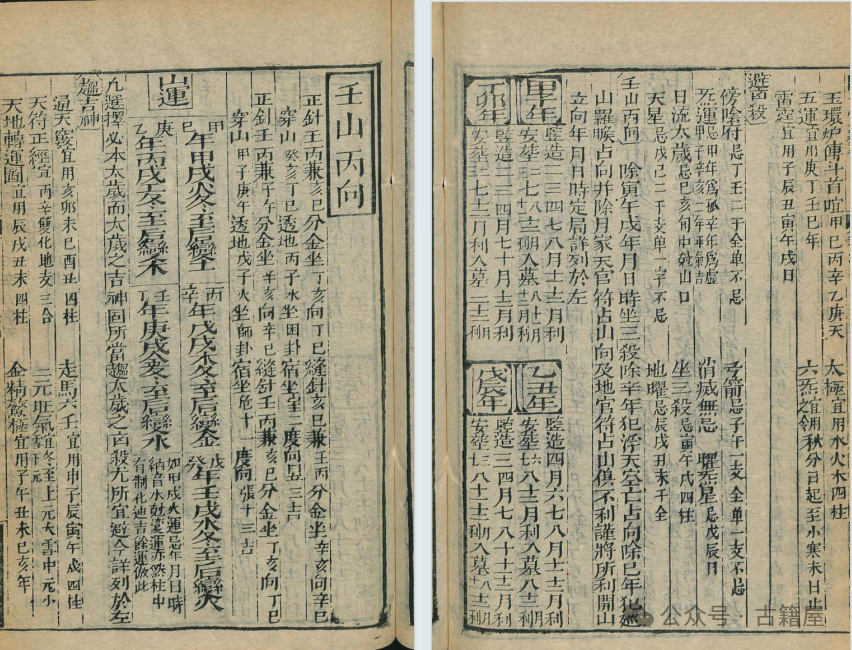 壬山丙向
正針壬丙兼亥巳分金坐丁亥向丁巳縫針亥巳兼壬丙分金坐辛亥向辛巳
穿山癸亥丁巳透地丙子水坐困卦宿坐室二度向五三吉
正針壬丙兼子午分金坐辛亥向辛巳縫針壬丙兼亥巳分金坐丁亥向丁巳
穿山甲子庚午透地戊子火坐師卦宿坐危十一度向張十三吉
山運
甲巳年甲戌火冬至后變土
丙辛年戊戌木冬至后變金
戊癸年壬戌水冬至后變火
乙庚年丙戌冬至后變木
丁壬年庚戌冬至后變水
如甲戌火運忌年月日時
納音水尅變運亦然柱中
有制化迪吉餘運倣此
凡選擇必本太歲而太歲之吉神固所當趨太歲之凶殺尤所宜避今詳列於左
趨吉神
通天竅宜用亥卯未巳酉丑四柱 走馬六壬宜用申子辰寅午戌四柱
天符正經宜丙辛雙化地支三合 三元旺氣宜冬至上元大雪中元小雪下元
天地轉運圖宜用辰戌丑未四柱 金精鰲極宜用子午丑未巳亥年
玉環妒傳斗首喧甲巳丙辛乙庚天 太極宜用水火木四柱
五運宜用庚丁壬巳年 六炁之令宜用秋分日起至小寒末日止
雷霆宜用子辰丑寅午戌日
避凶殺
傍陰府忌丁壬二干全單不忌 弓箭忌子午二支全單一支不忌
炁運忌甲年為孤辛年為虛 消滅無忌 曜炁星忌戊辰月
日流太歲忌巳亥旬中乾山口 坐三殺忌寅午戌四柱
天星忌戊己二干支單一字不忌 地曜忌辰戌丑未干全
壬山丙向 除寅午戌年月日時坐三殺除辛年犯浮天空亡占向除巳年犯巡
山羅睺占向并除月家天官符占山向及地官符占山俱不利謹將所利開山
立向年月日時定局詳列於左
甲子年 豎造二三四七八月十二月利
安葬二七八十二月利入墓八十二月利
乙丑年 豎造四月六七八月十二月利
安葬六八十二月利入墓八十二月利
丁卯年 豎造二三四月七十月十二月利
安葬二七十二月利入墓二十二利
戊辰年 豎造三四月七八十十二月利
安葬七八十二月利入墓八十二利
公众号 · 古籍屋